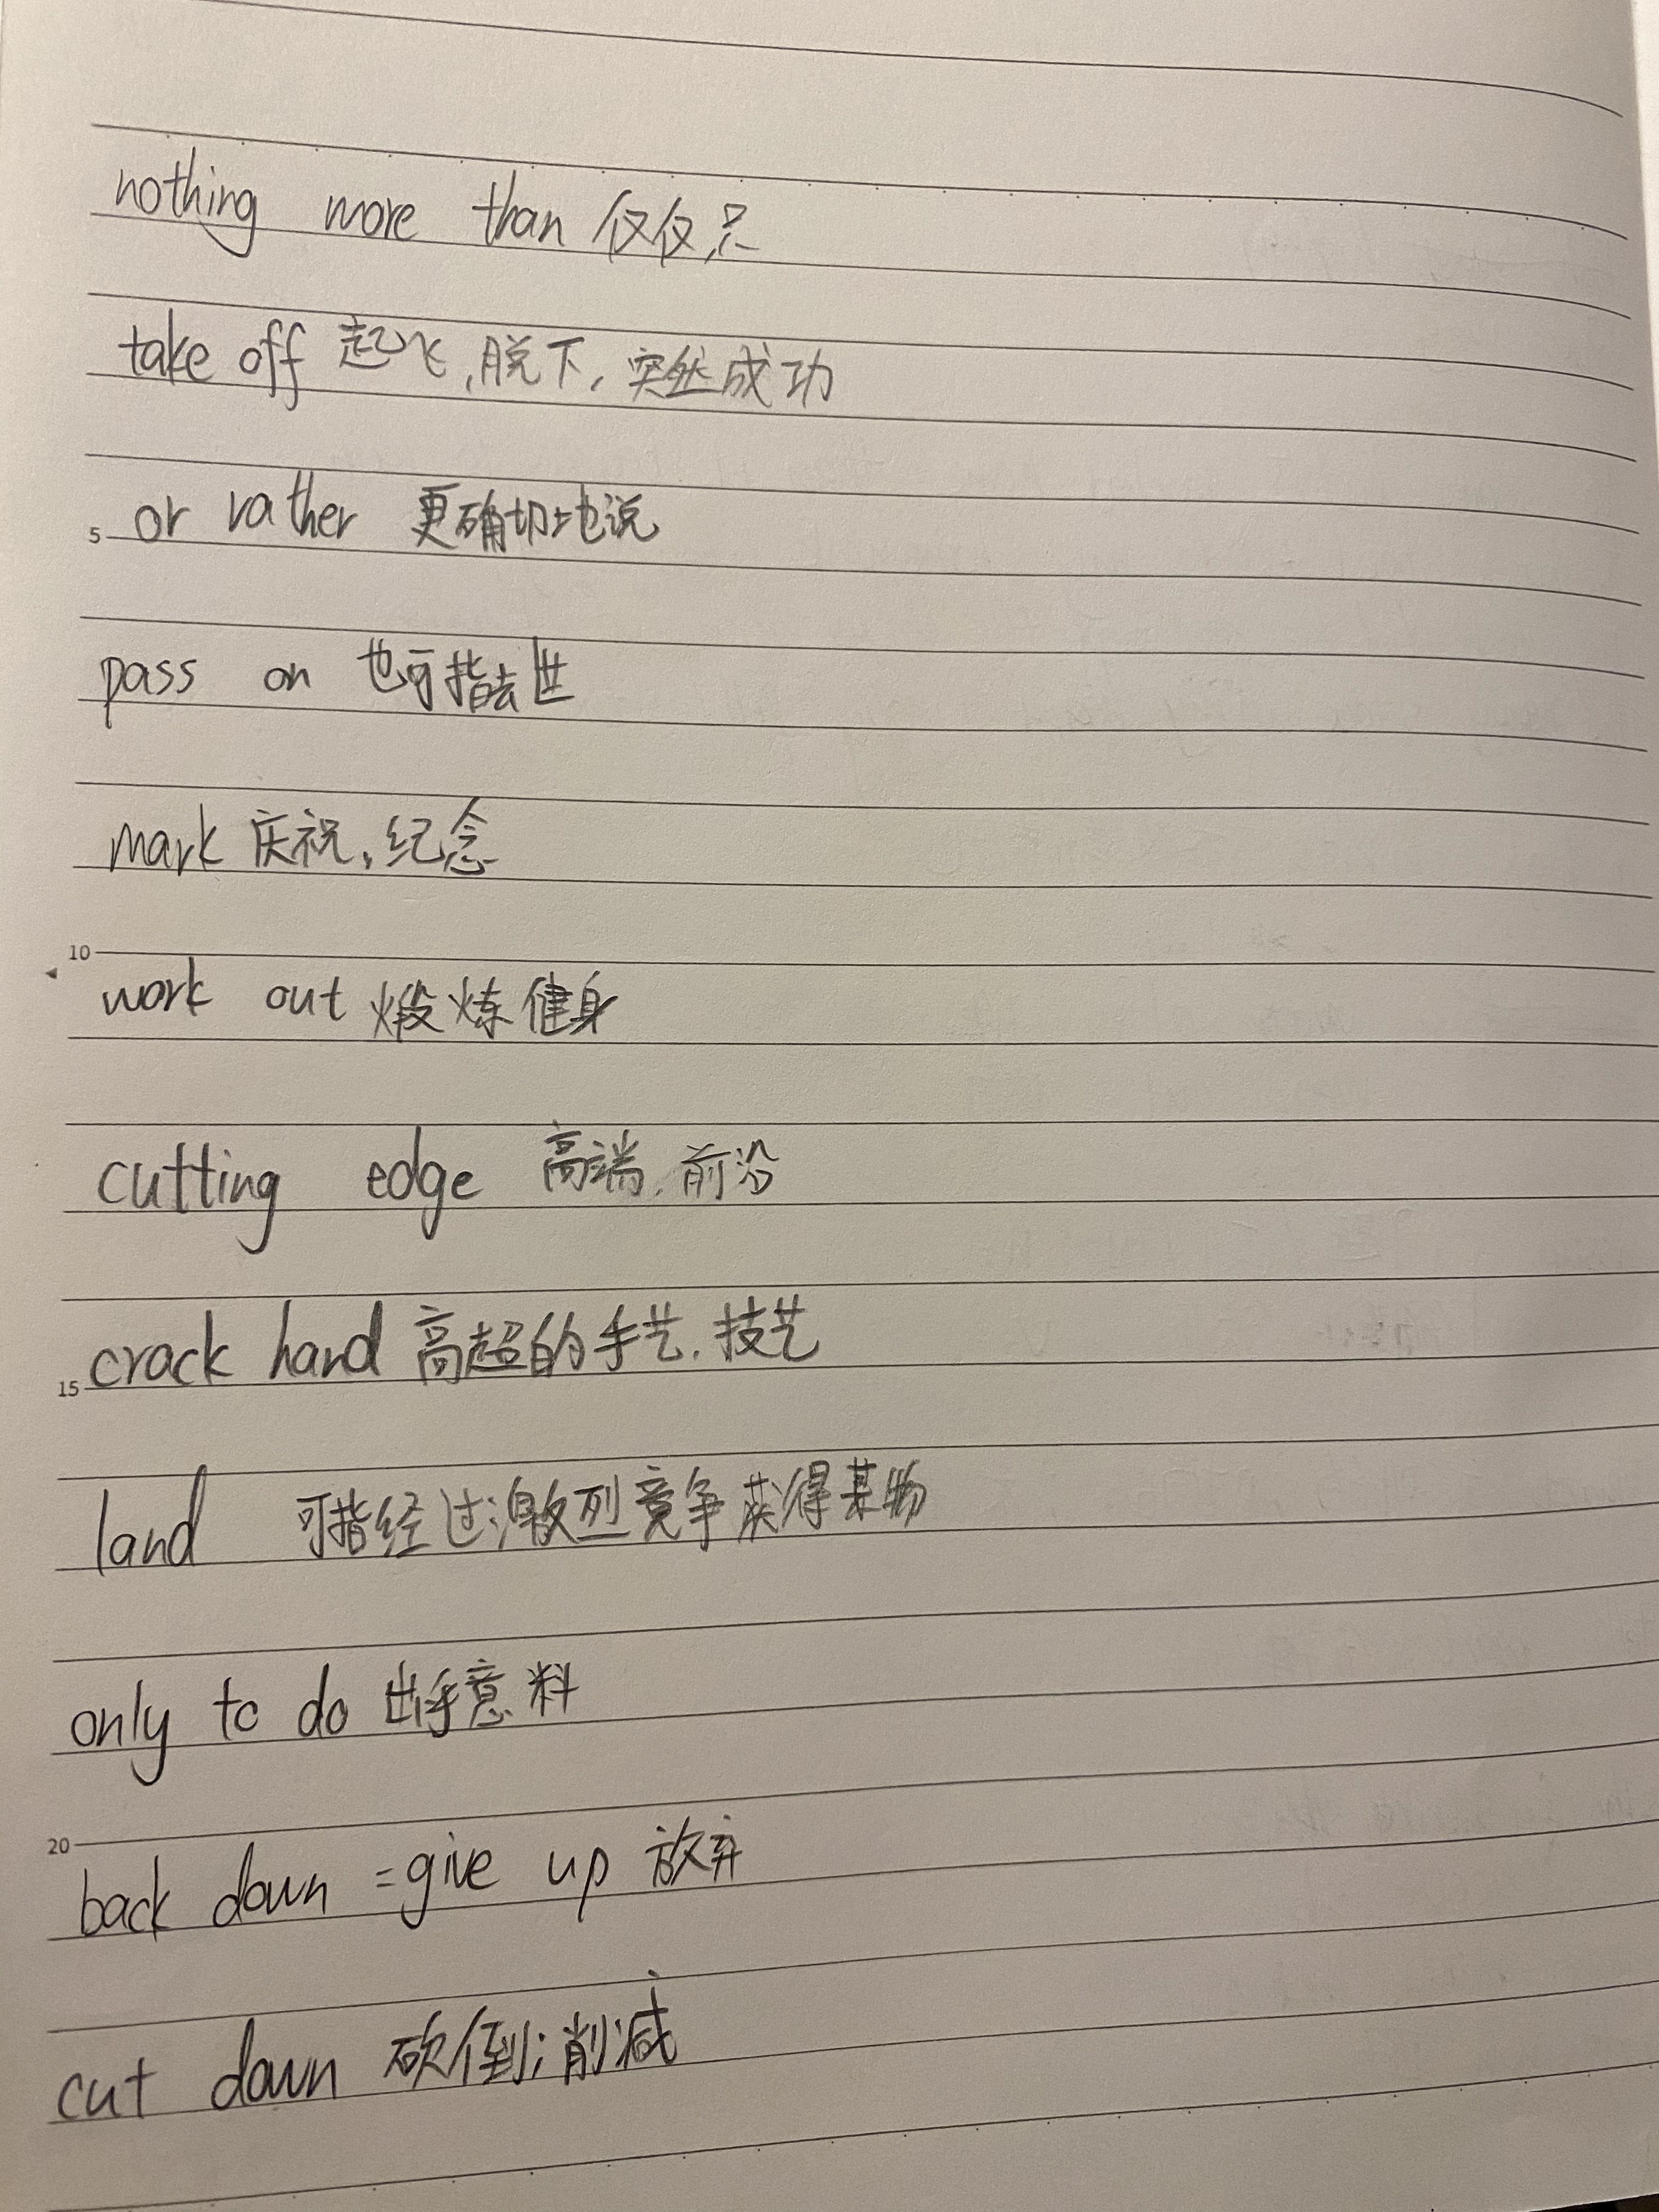 nothing more than 仅仅,只
take off 起飞,脱下,突然成功
5 or rather 更确切地说
pass on 也可指去世
mark 庆祝,纪念
10 work out 锻炼健身
cutting edge 高端,前沿
15 crack hand 高超的手艺,技艺
land 可指经过激烈竞争获得某物
only to do 出乎意料
20 back down = give up 放弃
cut down 砍倒;削减